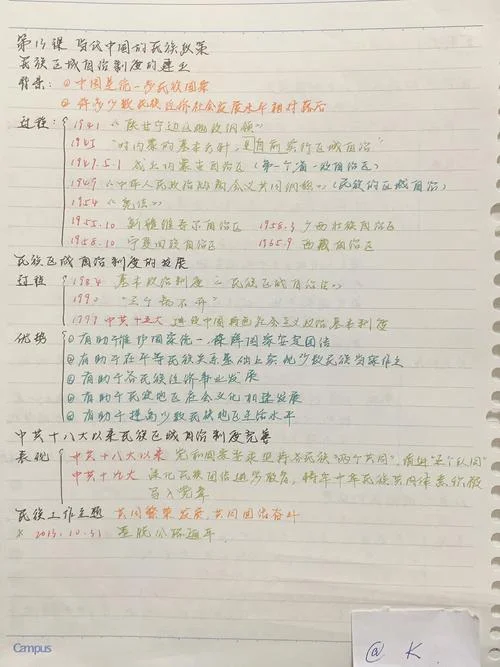 第13课 当代中国的民族政策
民族区域自治制度的建立
背景: ①中国是统一多民族国家
②许多少数民族经济社会发展水平相对落后
过程: 1941 《陕甘宁边区施政纲领》
1945 "对内蒙的基本方针,目前实行区域自治"
1947.5.1 成立内蒙古自治区(第一个省一级自治区)
1949 《中华人民政治协商会议共同纲领》(民族的区域自治)
1954 《宪法》
1955.10 新疆维吾尔自治区 1958.3 广西壮族自治区
1958.10 宁夏回族自治区 1965.9 西藏自治区
民族区域自治制度的发展
过程 1984 基本政治制度 《民族区域自治法》
1990 "三个离不开"
1997 中共十五大 中国特色社会主义政治基本制度
优势 ①有助于维护国家统一,保障国家安定团结
②有助于在平等民族关系基础上实现少数民族当家作主
③有助于各民族经济事业发展
④有助于民族地区社会文化相继发展
⑤有助于提高少数民族地区生活水平
中共十八大以来民族区域自治制度完善
表现 中共十八大以来 党和国家 各民族"两个共同",
中共十九大 深化民族团结进步教育,将铸牢中华民族共同体意识
写入党章
民族工作主题 共同繁荣发展,共同团结奋斗
10.31
Campus
@ K